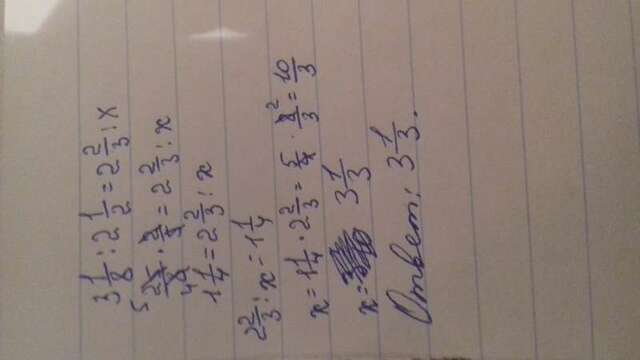 3 1/8 : 2 1/2 = 2 2/3 : x
5 25/8 4 · 2/5 = 2 2/3 : x
1 1/4 = 2 2/3 : x
2 2/3 : x = 1 1/4
x = 1 1/4 · 2 2/3 = 5/4 · 8/3 2 = 10/3
x = 3 1/3
Ответ: 3 1/3.